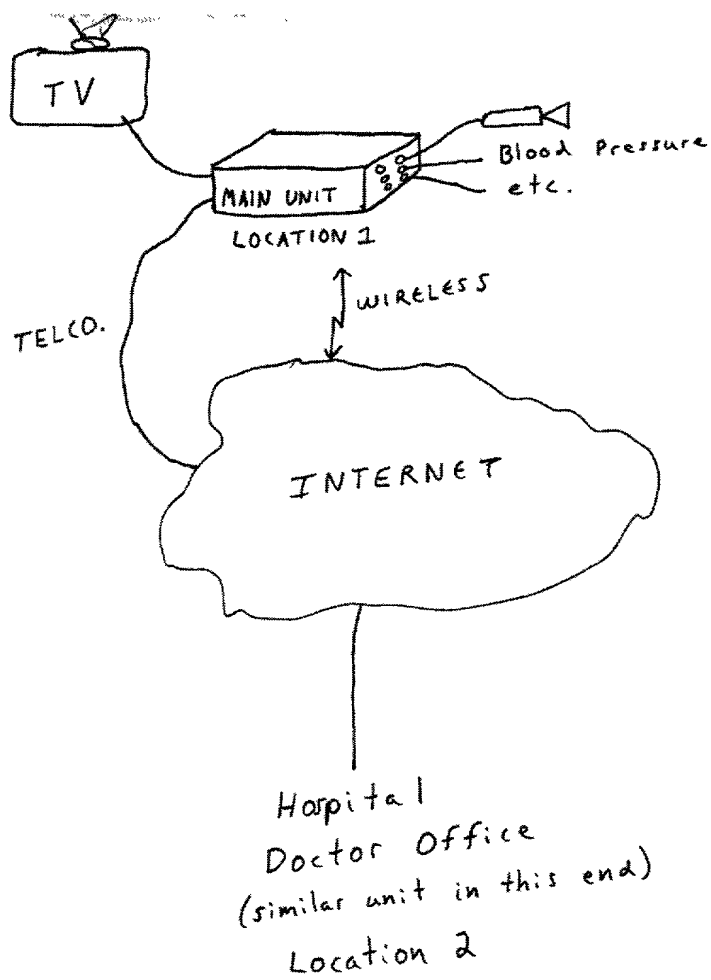 TV
Blood Pressure
etc.
MAIN UNIT
LOCATION 1
WIRELESS
TELCO.
INTERNET
Hospital
Doctor Office
(similar unit in this end)
Location 2